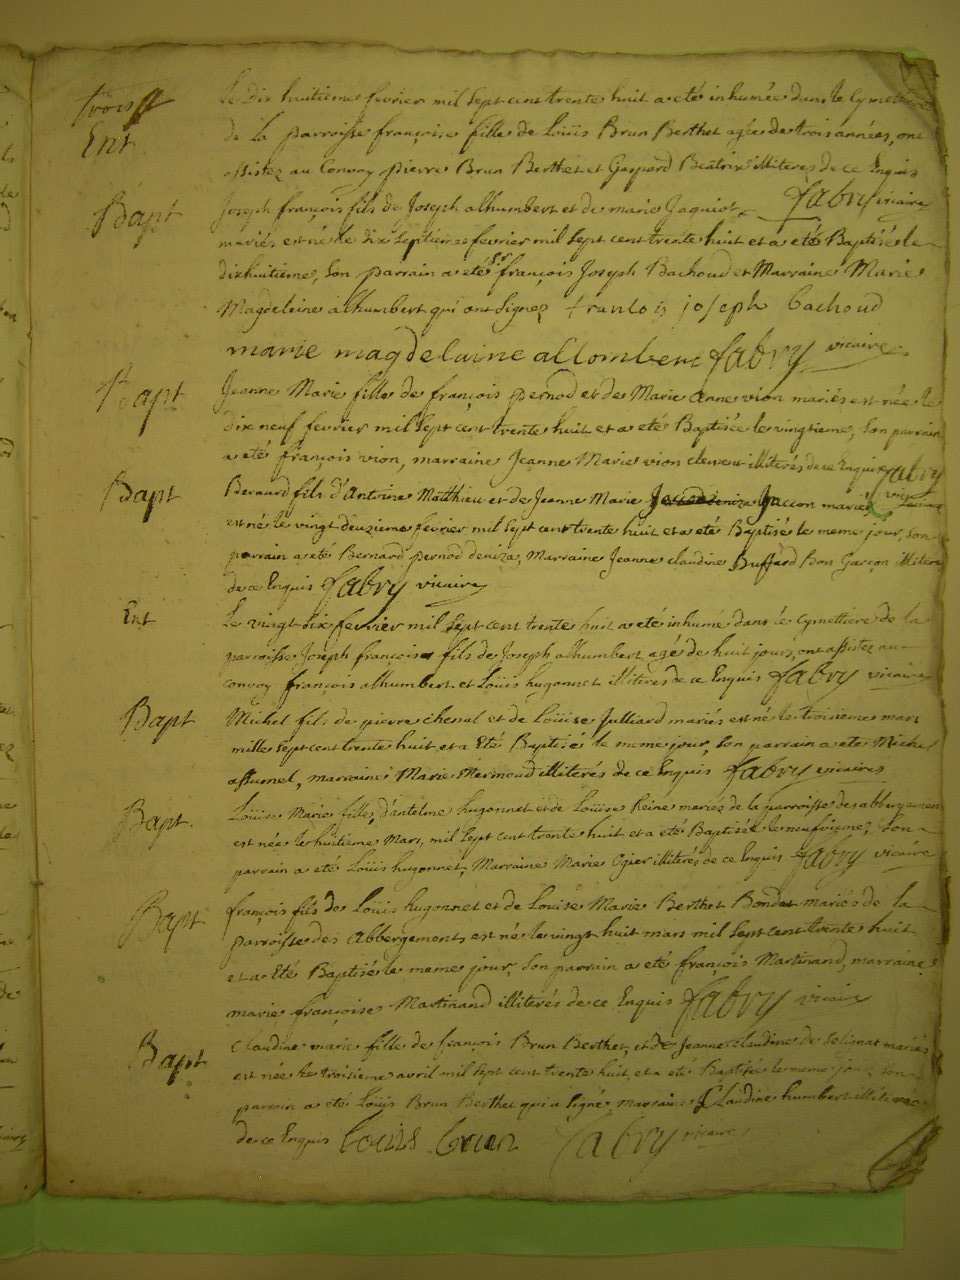 trois
Ent
Le dix huitieme fevrier mil sept cent trente huit a eté inhumée dans le Cymettiere
de la parroisse françoise fille de Loüis Brun Berthet agée de trois années, ont
assistez au Convoy pierre Brun Berthet et Gaspard Beatrix illiteres de ce Enquis
Bapt
Joseph françois fils de Joseph alhumbert et de marie Jaquiot fabry vicaire
mariés est né le dix septieme fevrier mil sept cent trente huit et a eté Baptisé le
dixhuitieme, son parrain a eté sr françois Joseph Bachoud et Marraine Marie
Magdeleine alhumbert qui ont signez francois joseph bachoud
marie magdelaine allombert fabry vicaire
Bapt
Jeanne Marie fille de françois pernod et de Marie anne vion mariés est née le
dix neuf fevrier mil sept cent trente huit et a eté Baptisée le vingtieme, son parrain
a eté françois vion, marraine Jeanne Marie vion illiterés de ce Enquis fabry
vicaire
Bapt
Bernard fils d'Antoine Matthieu et de Jeanne Marie Jaccon mariés
est né le vingt deuzieme fevrier mil sept cent trente huit et a eté Baptisé le meme jour, son
parrain a eté Bernard pernod deniza, Marraine Jeanne claudine Buffard Bon Garçon illiteré
de ce Enquis fabry vicaire
Ent
Le vingt six fevrier mil sept cent trente huit a eté inhumé dans le Cymettiere de la
parroisse Joseph françois fils de Joseph alhumbert agé de huit jours, ont assistez au
convoy françois alhumbert et Loüis hugonnet illiterés de ce Enquis fabry vicaire
Bapt
Michel fils de pierre chenel et de Loüise Julliard mariés est né le troisieme mars
mille sept cent trente huit et a Eté Baptisé le meme jour, son parrain a ete Michel
assumel, marraine Marie Mermoud illiterés de ce Enquis fabry vicaire
Bapt
Loüise Marie fille d'antelme hugonnet et de Loüise Reine mariez de la parroisse des abbergemens
est née le huitieme Mars, mil sept cent trente huit et a eté Baptisée le neufvieme, son
parrain a eté Loüis hugonnet, Marraine Marie Ogier illiterés de ce Enquis fabry vicaire
Bapt
françois fils de Loüis hugonnet et de Loüise Marie Berthet Bondet mariés de la
parroisse des Abbergements est né le vingt huit mars mil sept cent trente huit
et a Eté Baptisé le meme jour, son parrain a eté françois Martinand, marraine
marie françoise Martinand illiterés de ce Enquis fabry vicaire
Bapt
Claudine marie fille de françois Brun Berthet, et de Jeanne claudine de Telisnat mariés
est née le troisieme avril mil sept cent trente huit, et a eté Baptisée le meme jour son
parrain a eté Loüis Brun Berthet qui a signé, marraine Claudine humbert illiterée
de ce Enquis louis brun fabry vicaire